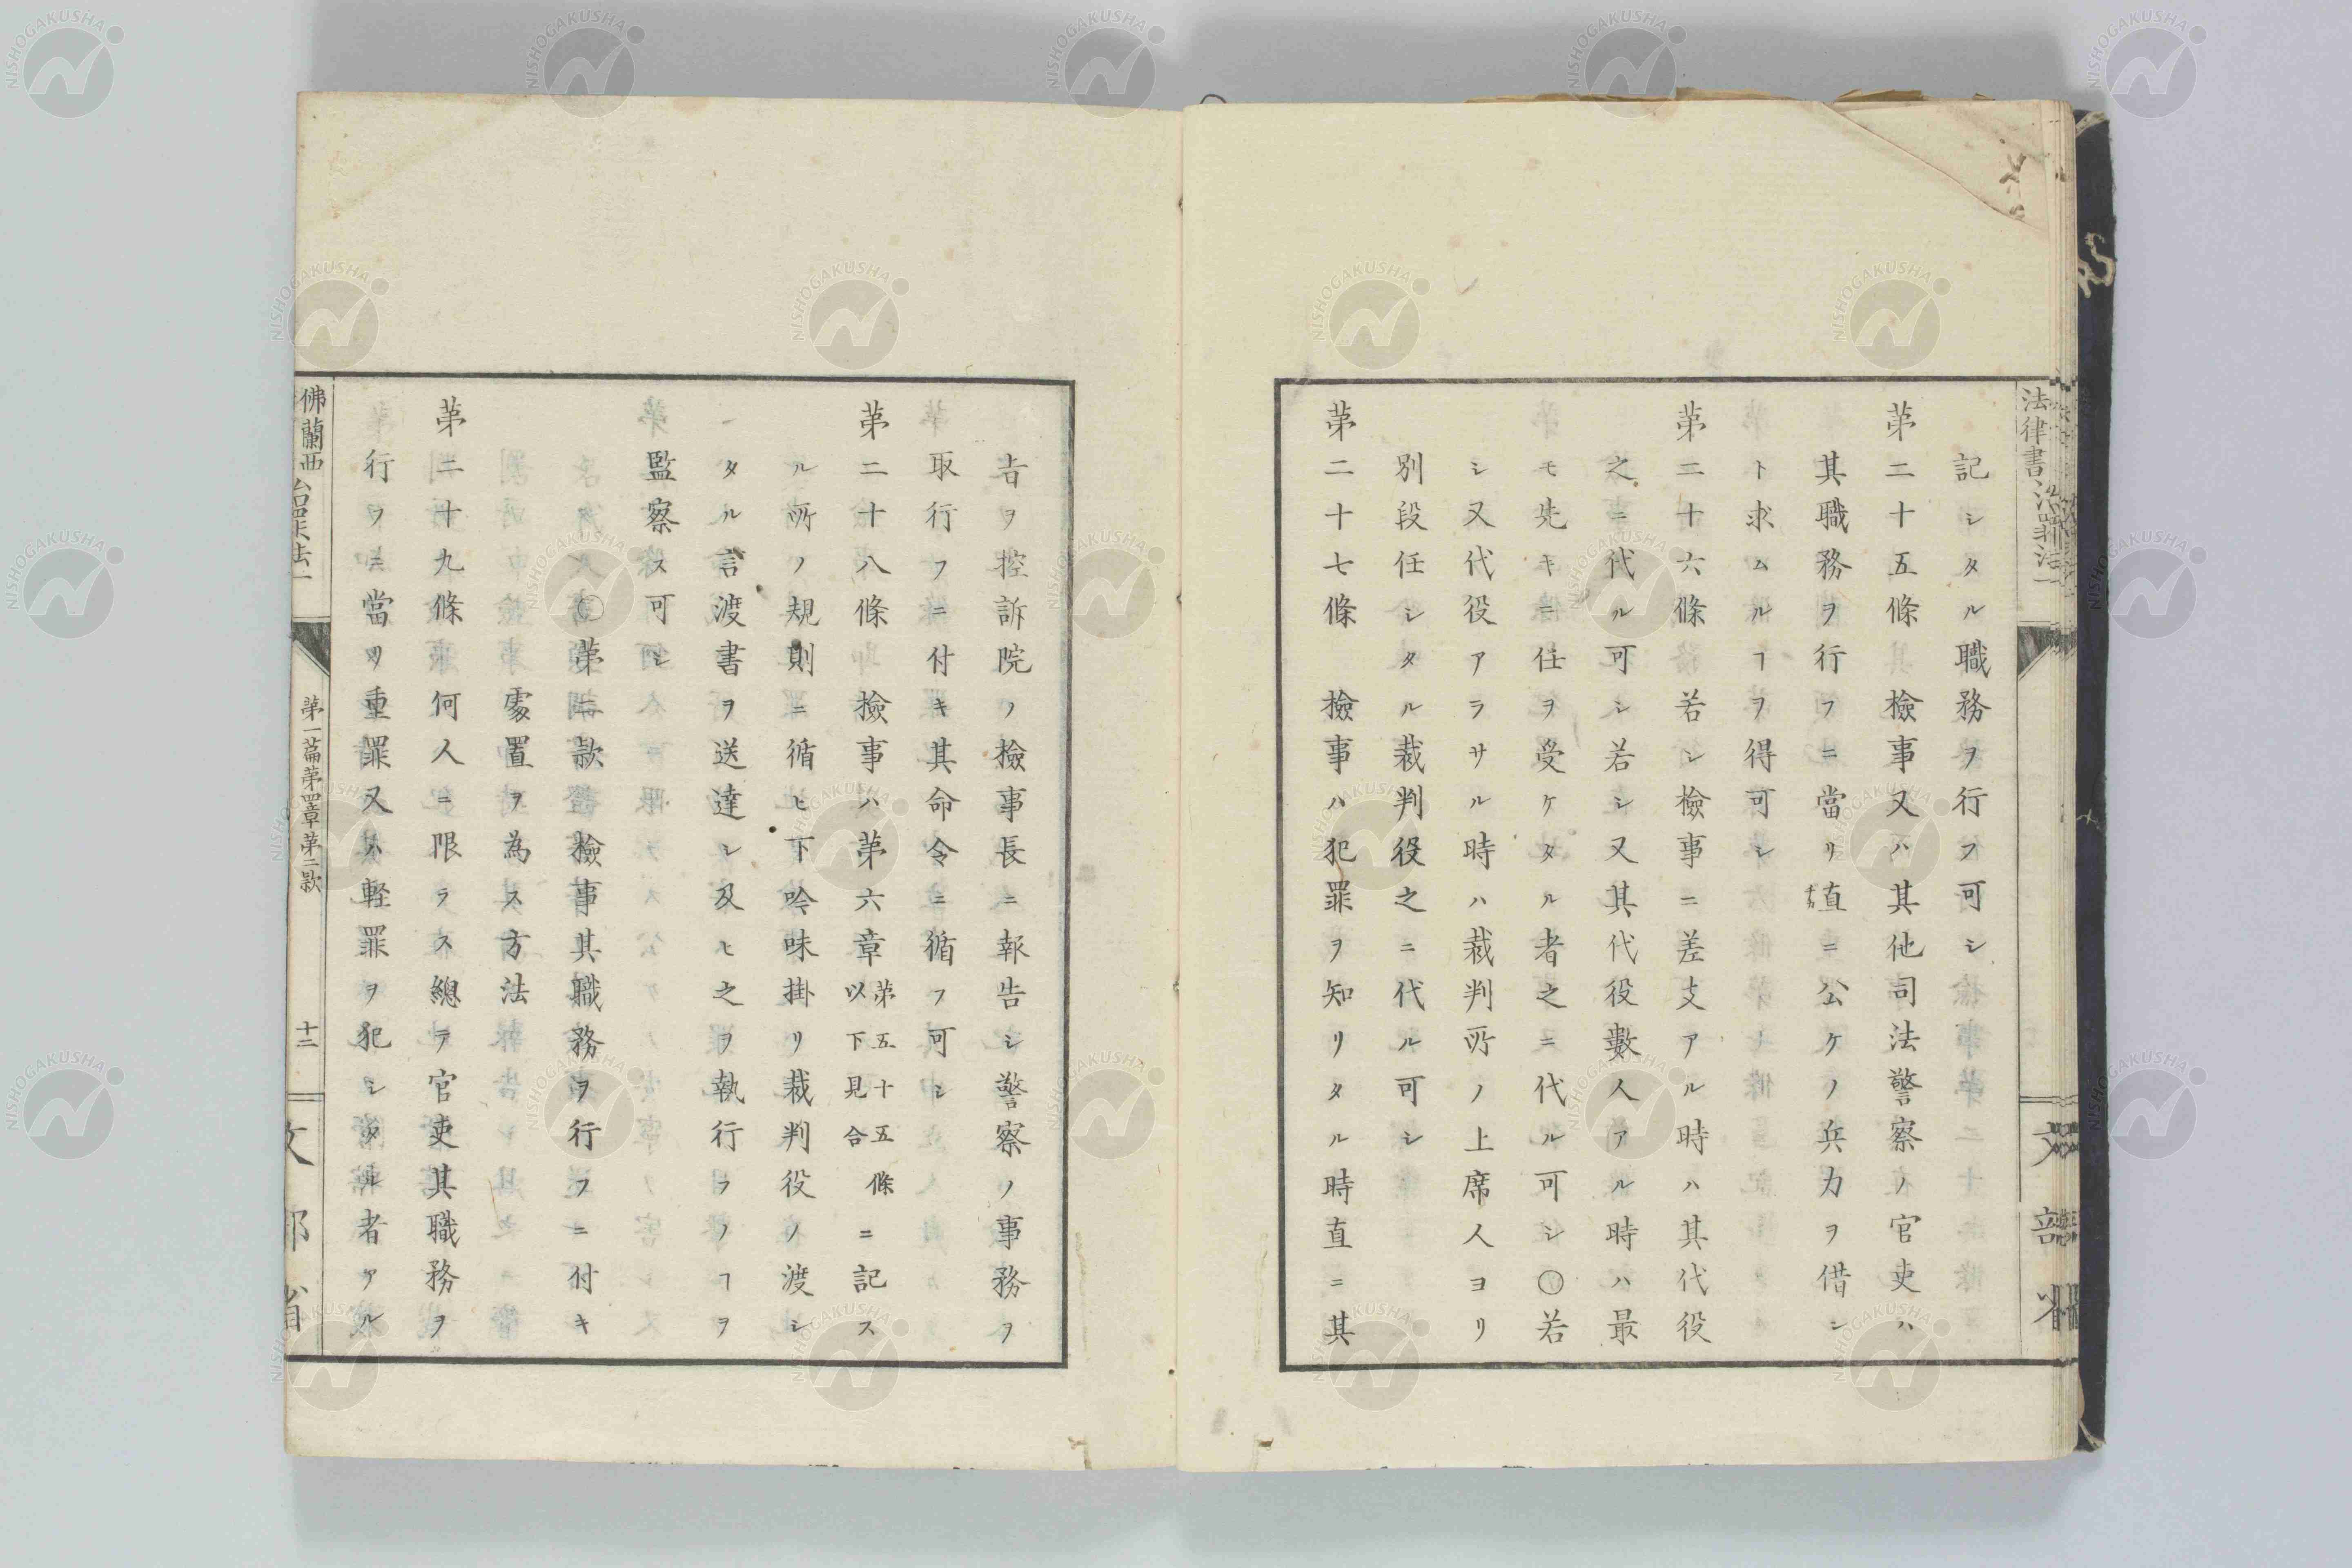 記シタル職務ヲ行フ可シ
第二十五條　檢事又ハ其他司法警察ノ官吏ハ
其職務ヲ行フニ當リ直チカニ公ケノ兵力ヲ借シ
ト求ムルヿヲ得可シ
第二十六條　若シ檢事ニ差支アル時ハ其代役
之ニ代ル可シ若シ又其代役數人アル時ハ最
モ先キニ任ヲ受ケタル者之ニ代ル可シ〇若
シ又代役アラサル時ハ裁判所ノ上席人ヨリ
別段任シタル裁判役之ニ代ル可シ
第二十七條　檢事ハ犯罪ヲ知リタル時直ニ其
吿ヲ控訴院ノ檢事長ニ報告シ警察ノ事務ヲ
取行フニ付キ其命令ニ循フ可シ
第二十八條　檢事ハ第六章第五十五條以下見合ニ記ス
ル所ノ規則ニ循ヒ下吟味掛リ裁判役ノ渡シ
タル言渡書ヲ送達シ及ヒ之ヲ執行フノヿヲ
監察ス可シ
〇第二款　檢事其職務ヲ行フニ付キ
處置ヲ為ス方法
第二十九條　何人ニ限ラス總テ官吏其職務ヲ
行フニ當リ重罪又ハ輕罪ヲ犯シタル者アル
佛蘭西
第一篇第四章第二款
十二
文部省
NISHOGAKUSHA